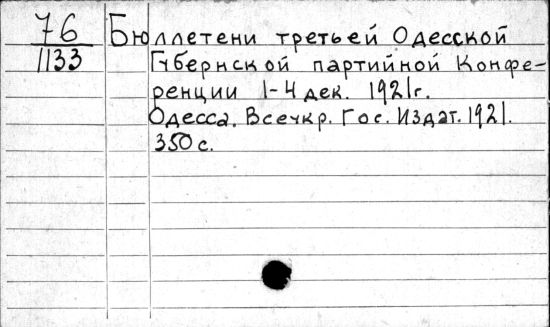 76 Бюллетени третьей Одесской
1133 Губернской партийной Конфе-
ренции 1-4 дек. 1921г.
Одесса. Всеукр. Гос. Издат. 1921.
350 с.